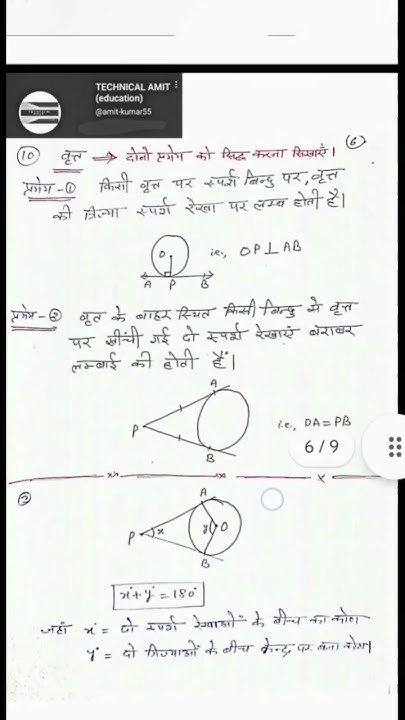 TECHNICAL AMIT
(education)
@amit-kumar55
(6)
(10) वृत्त ⇒ दोनो प्रमेय को सिद्ध करना सिखाएँ।
प्रमेय-① किसी वृत्त पर स्पर्श बिन्दु पर, वृत्त
की त्रिज्या स्पर्श रेखा पर लम्ब होती है।
O
A P B
i.e., OP ⊥ AB
प्रमेय-② वृत्त के बाहर स्थित किसी बिन्दु से वृत्त
पर खींची गई दो स्पर्श रेखाएँ बराबर
लम्बाई की होती हैं।
A
P
B
i.e., DA = PB
6 / 9
A
P x y O
B
x° + y° = 180°
जहाँ x° = दो स्पर्श रेखाओं के बीच का कोण
y° = दो त्रिज्याओं के बीच केन्द्र पर बना कोण।